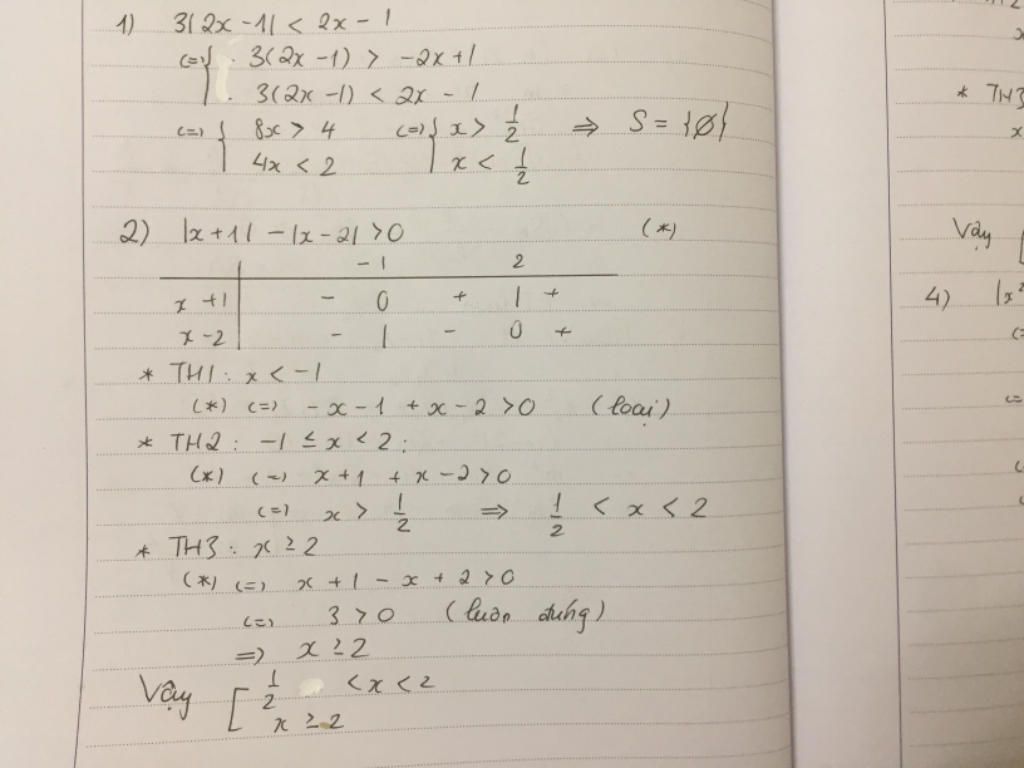 1) 3|2x - 1| < 2x - 1
<=> { 3(2x - 1) > -2x + 1
3(2x - 1) < 2x - 1
<=> { 8x > 4 <=> { x > 1/2 => S = {∅}
4x < 2 x < 1/2
2) |x + 1| - |x - 2| > 0 (*)
-1 2
x + 1 - 0 + | +
x - 2 - | - 0 +
* TH1: x < -1
(*) <=> -x - 1 + x - 2 > 0 (loại)
* TH2: -1 ≤ x < 2:
(*) <=> x + 1 + x - 2 > 0
<=> x > 1/2 => 1/2 < x < 2
* TH3: x ≥ 2
(*) <=> x + 1 - x + 2 > 0
<=> 3 > 0 (luôn đúng)
=> x ≥ 2
Vậy [ 1/2 < x < 2
x ≥ 2
* TH3
x
Vậy [
4) |x²